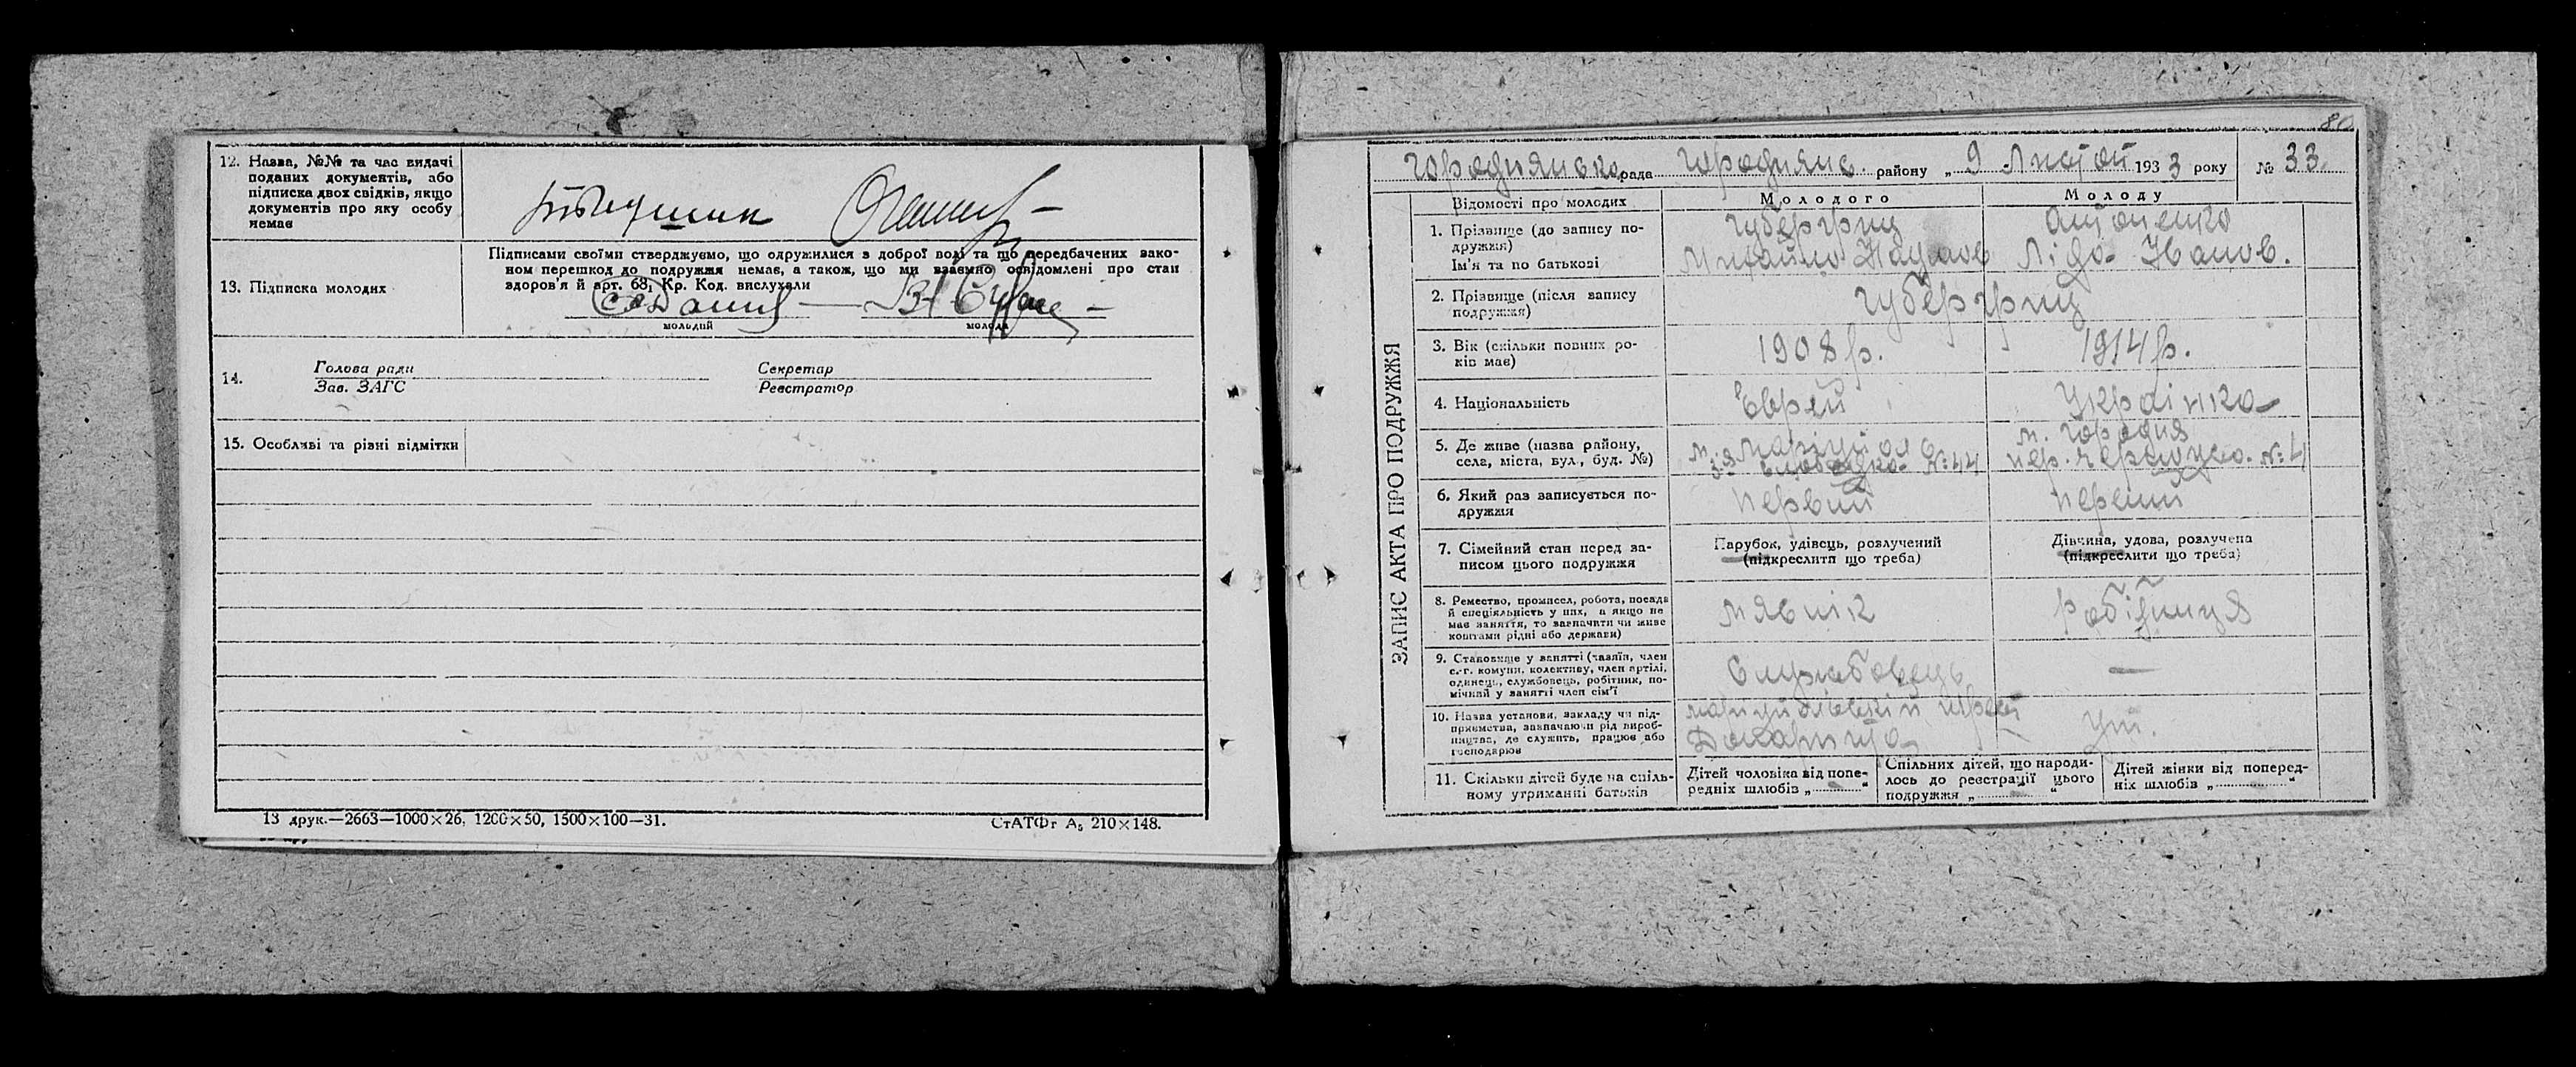 12. Назва, №№ та час видачі
поданих документів, або
підписка двох свідків, якщо
документів про яку особу
немає
Підписами своїми стверджуємо, що одружилися з доброї волі та що передбачених зако-
ном перешкод до подружжя немає, а також, що ми взаємно освідомлені про стан
здоров'я й арт. 68, Кр. Код. вислухали
13. Підписка молодих
молодий
молода
14.
Голова ради
Зав. ЗАГС
Секретар
Реєстратор
15. Особливі та різні відмітки
13 друк.—2663—1000×26, 1200×50, 1500×100—31.
СтАТФг А₅ 210×148.
80
Городнянська рада Городнянс. району „9 Лютий 1933 року
№ 33.
ЗАПИС АКТА ПРО ПОДРУЖЖЯ
Відомості про молодих
Молодого
Молоду
1. Прізвище (до запису по-
дружжя)
Ім'я та по батькові
Губергриц
Михайло Наумов
Антоненко
Ліда Іванов.
2. Прізвище (після запису
подружжя)
Губергриц
3. Вік (скільки повних ро-
ків має)
1908 р.
1914 р.
4. Національність
Єврей
Українка
5. Де живе (назва району,
села, міста, вул., буд. №)
м. Маріуполь
3-я Слободка №44
м. Городня
пер. №4
6. Який раз записується по-
дружжя
Первий
Перший
7. Сімейний стан перед за-
писом цього подружжя
Парубок, удівець, розлучений
(підкреслити що треба)
Дівчина, удова, розлучена
(підкреслити що треба)
8. Ремество, промисел, робота, посада
й спеціяльність у них, а якщо не
має заняття, то зазначити чи живе
коштами рідні або держави)
Робітниця
9. Становище у занятті (хазяїн, член
с.-г. комуни, колективу, член артілі,
одинець, службовець, робітник, по-
мічний у занятті член сім'ї
Службовець
—
10. Назва установи, закладу чи під-
приємства, зазначаючи рід вироб-
ництва, де служить, працює або
господарює
11. Скільки дітей буде на спіль-
ному утриманні батьків
Дітей чоловіка від попе-
редніх шлюбів „ “
Спільних дітей, що народи-
лось до реєстрації цього
подружжя „ “
Дітей жінки від поперед-
ніх шлюбів „ “